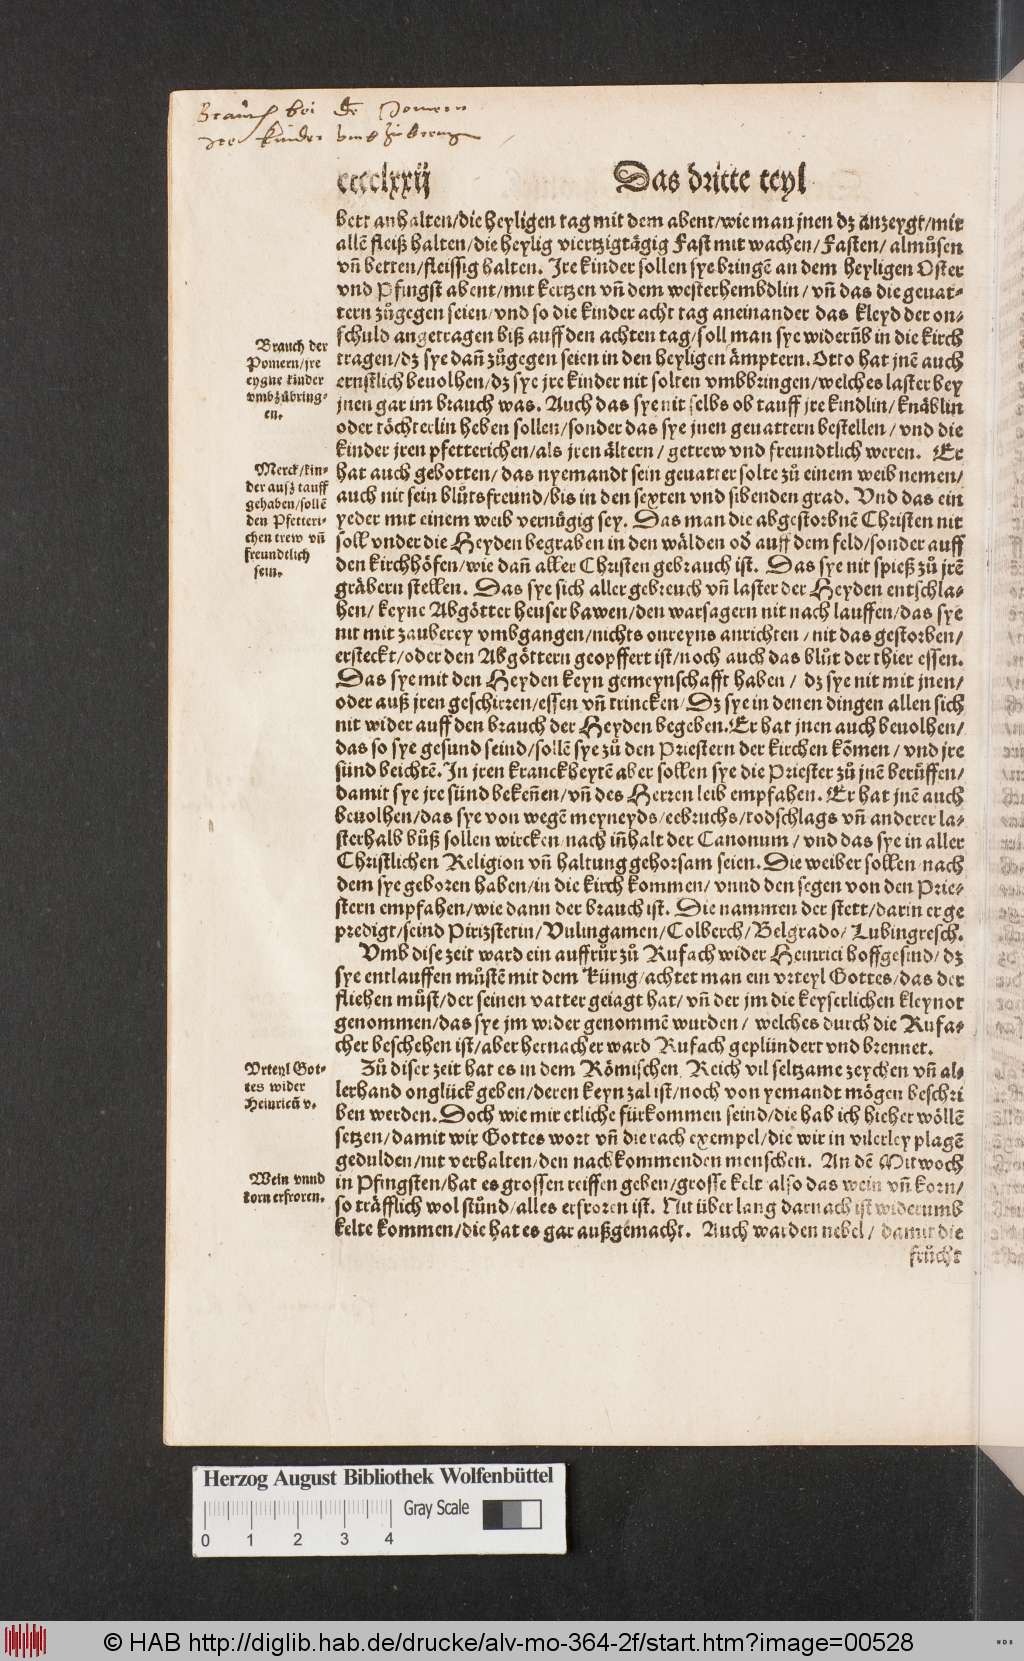 Brauch bei dē Pomern
Jre kinder vmb zůbreng
ccccLxxij
Das dritte teyl
bett anhalten/die heyligen tag mit dem abent/wie man jnen dz anzeygt/mit
allē fleiß halten/die heylig viertzigtägig Fast mit wachen/Fasten/almůsen
vñ betten/fleissig halten. Jre kinder sollen sye bringē an dem heyligen Oster
vnd Pfingst abent/mit kertzen vñ dem westerhembdlin/vñ das die geuat-
tern zůgegen seien/vnd so die kinder acht tag aneinander das kleyd der on-
schuld angetragen biß auff den achten tag/soll man sye widerūb in die kirch
tragen/dz sye dañ zůgegen seien in den heyligen ämptern. Otto hat jnē auch
ernstlich beuolhen/dz sye jre kinder nit solten vmbbringen/welches laster bey
jnen gar im brauch was. Auch das sye nit selbs ob tauff jre kindlin/knäblin
oder töchterlin heben sollen/sonder das sye jnen geuattern bestellen/vnd die
kinder jren pfetterichen/als jren ältern/getrew vnd freundtlich weren. Er
hat auch gebotten/das nyemandt sein geuatter solte zů einem weib nemen/
auch nit sein blůtsfreund/bis in den sexten vnd sibenden grad. Vnd das ein
yeder mit einem weib vernügig sey. Das man die abgestorbnē Christen nit
soll vnder die Heyden begraben in den wälden oď auff dem feld/sonder auff
den kirchhöfen/wie dañ aller Christen gebrauch ist. Das sye nit spieß zů jrē
gräbern stellen. Das sye sich aller gebreuch vñ laster der Heyden entschla-
hen/keyne Abgötter heuser bawen/den warsagern nit nach lauffen/das sye
nit mit zauberey vmbgangen/nichts onreyns anrichten/nit das gestorben/
ersteckt/oder den Abgöttern geopffert ist/noch auch das blůt der thier essen.
Das sye mit den Heyden keyn gemeynschafft haben/dz sye nit mit jnen/
oder auß jren geschirren/essen vñ trincken/Dz sye in denen dingen allen sich
nit wider auff den brauch der Heyden begeben. Er hat jnen auch beuolhen/
das so sye gesund seind/sollē sye zů den Priestern der kirchen kōmen/vnd jre
sünd beichtē. In jren kranckheytē aber sollen sye die Priester zů jnē berüffen/
damit sye jre sünd bekeñen/vñ des Herren leib empfahen. Er hat jnē auch
beuolhen/das sye von wegē meyneyds/eebruchs/todschlags vñ anderer la-
sterhalb bůß sollen wircken/nach iñhalt der Canonum/vnd das sye in aller
Christlichen Religion vñ haltung gehorsam seien. Die weiber sollen/nach
dem sye geboren haben/in die kirch kommen/vnnd den segen von den Prie-
stern empfahen/wie dann der brauch ist. Die nammen der stett/darin er ge
predigt/seind Pirizstetin/Vulingamen/Colberch/Belgrado/Lubingresch.
Vmb dise zeit ward ein auffrůr zů Rufach wider Heinrici hoffgesind/dz
sye entlauffen můstē mit dem Künig/achtet man ein vrteyl Gottes/das der
fliehen můst/der seinen vatter geiagt hat/vñ der jm die keyserlichen kleynot
genommen/das sye jm wider genommē wurden/welches durch die Rufa-
cher beschehen ist/aber hernacher ward Rufach geplündert vnd brennet.
Zů diser zeit hat es in dem Römischen Reich vil seltzame zeychen vñ al-
lerhand onglück geben/deren keyn zal ist/noch von yemandt mögen beschri
ben werden. Doch wie mir etliche fürkommen seind/die hab ich hieher wöllē
setzen/damit wir Gottes wort vñ die rach exempel/die wir in vilerley plagē
gedulden/nit verhalten/den nachkommenden menschen. An dē Mitwoch
in Pfingsten/hat es grossen reiffen geben/grosse kelt/also das wein vñ korn/
so träfflich wol stůnd/alles erfroren ist. Nit über lang darnach ist widerumb
kelte kommen/die hat es gar außgemacht. Auch warden nebel/damit die
frücht
Brauch der
Pomern/jre
eygne kinder
vmbzůbring-
en.
Merck/kin-
der auß tauff
gehaben/sollē
den Pfetteri-
chen trew vñ
freundtlich
sein.
Vrteyl Got-
tes wider
Heinricū v.
Wein vnnd
korn erfroren.
Herzog August Bibliothek Wolfenbüttel
Gray Scale
0 1 2 3 4
© HAB http://diglib.hab.de/drucke/alv-mo-364-2f/start.htm?image=00528